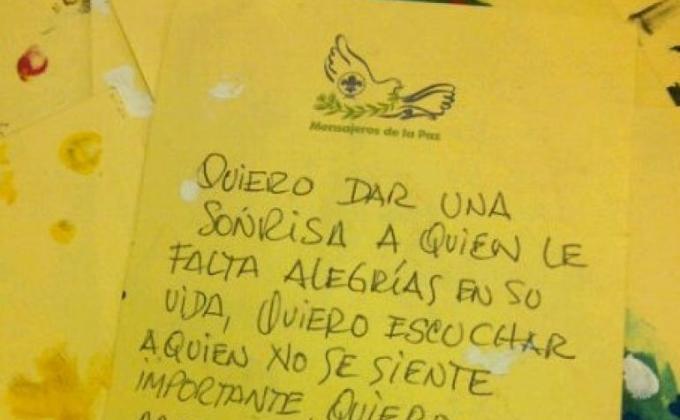 Mensajeros de la Paz
QUIERO DAR UNA
SONRISA A QUIEN LE
FALTA ALEGRÍAS EN SU
VIDA, QUIERO ESCUCHAR
A QUIEN NO SE SIENTE
IMPORTANTE, QUIERO